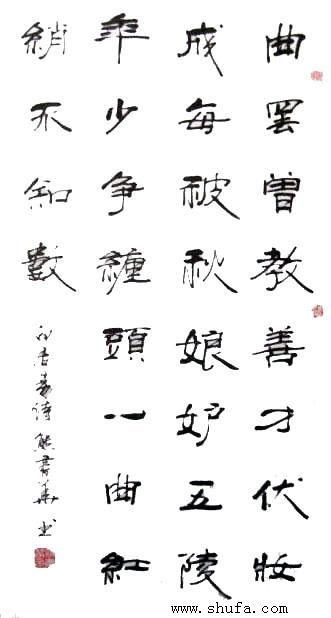 曲罢曾教善才伏妝
成每被秋娘妒五陵
年少争纏頭一曲紅
綃不知數
白居易詩 熊書華书
www.shufa.com